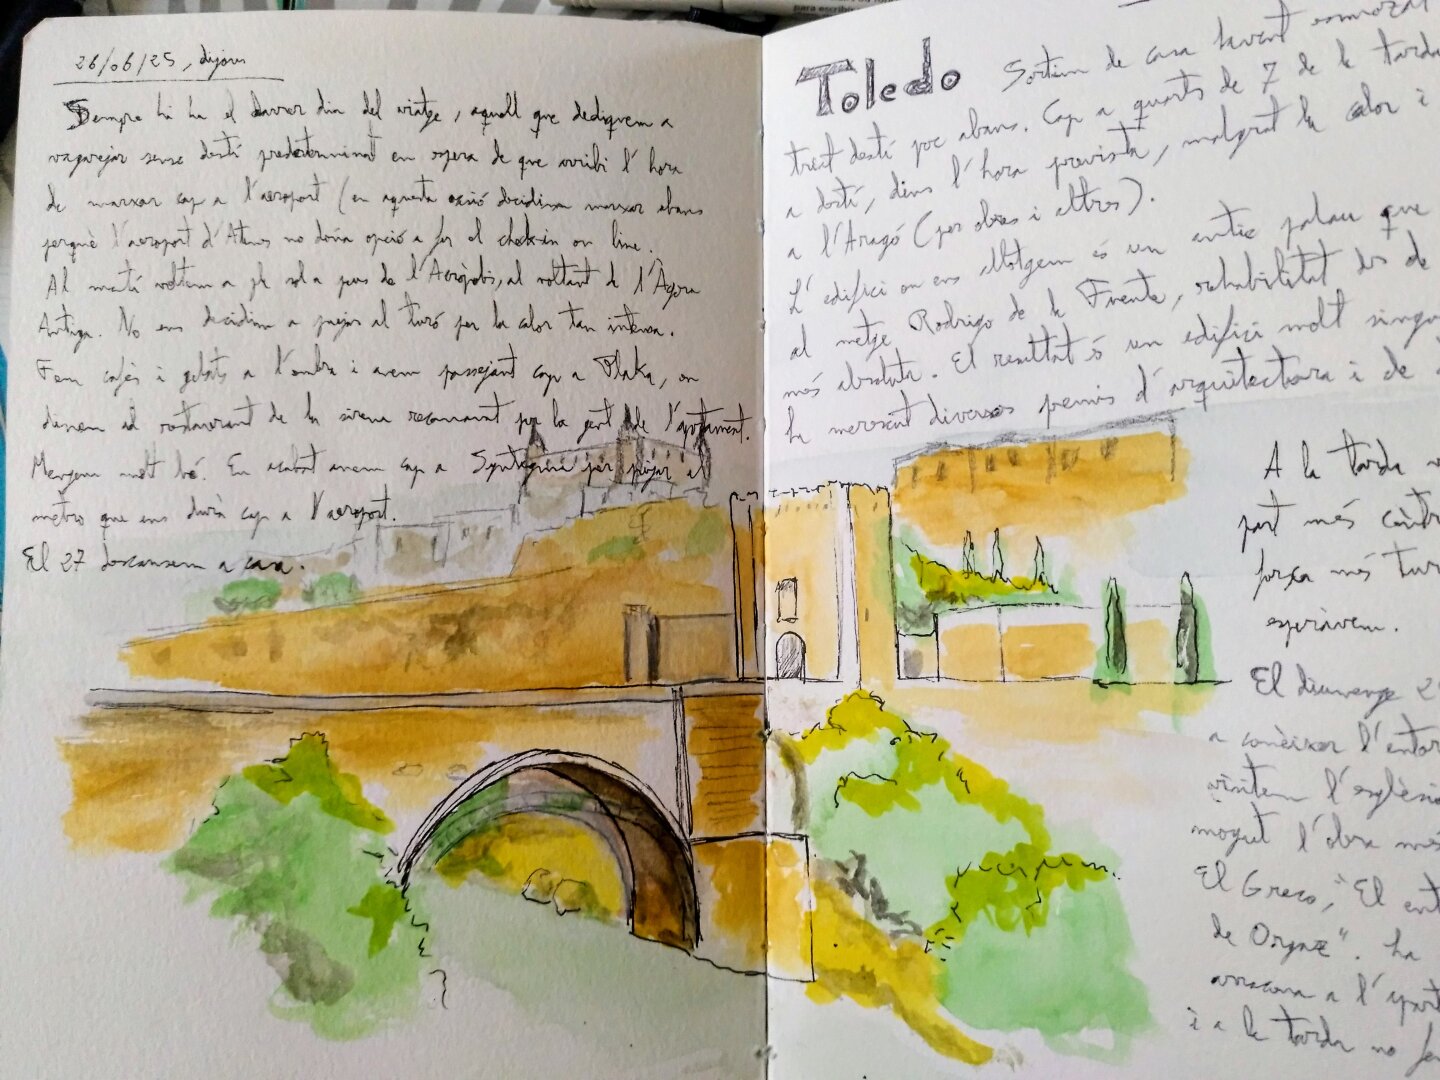 para escribir
26/06/25, dijous
Sempre hi ha el darrer dia del viatge, aquell que dediquem a
vagarejar sense destí predeterminat en espera de que arribi l'hora
de marxar cap a l'aeroport (en aquesta ocasió decidirem marxar abans
perquè l'aeroport d'Atenes no dona opció a fer el check-in on line.
Al matí voltem a ple sol a peus de l'Acròpolis, al voltant de l'Àgora
Antiga. No ens decidim a pujar al turó per la calor tan intensa.
Fem cafès i gelats a l'ombra i anem passejant cap a Plaka, on
dinem al restaurant de la sirena recomanat per la gent de l'apartament.
Mengem molt bé. En acabat anem cap a Syntagma per pujar al
metro que ens durà cap a l'aeroport.
El 27 descansem a casa.
Toledo
Sortim de casa havent esmorzat
trent destí poc abans. Cap a quarts de 7 de la tarda
a destí, dins l'hora prevista, malgrat la calor i
a l'Aragó (per obres i altres).
L'edifici on ens allotgem és un antic palau que
al metge Rodrigo de la Fuente, rehabilitat des de
més absoluta. El resultat és un edifici molt singu
ha merescut diversos premis d'arquitectura i de
A la tarda
part més cèntr
força més tur
esperàvem.
El diumenge 2
a conèixer l'entor
visitem l'esglési
mogut l'obra més
El Greco, "El ent
de Orgaz". ha
a l'apart
i a la tarda no fem